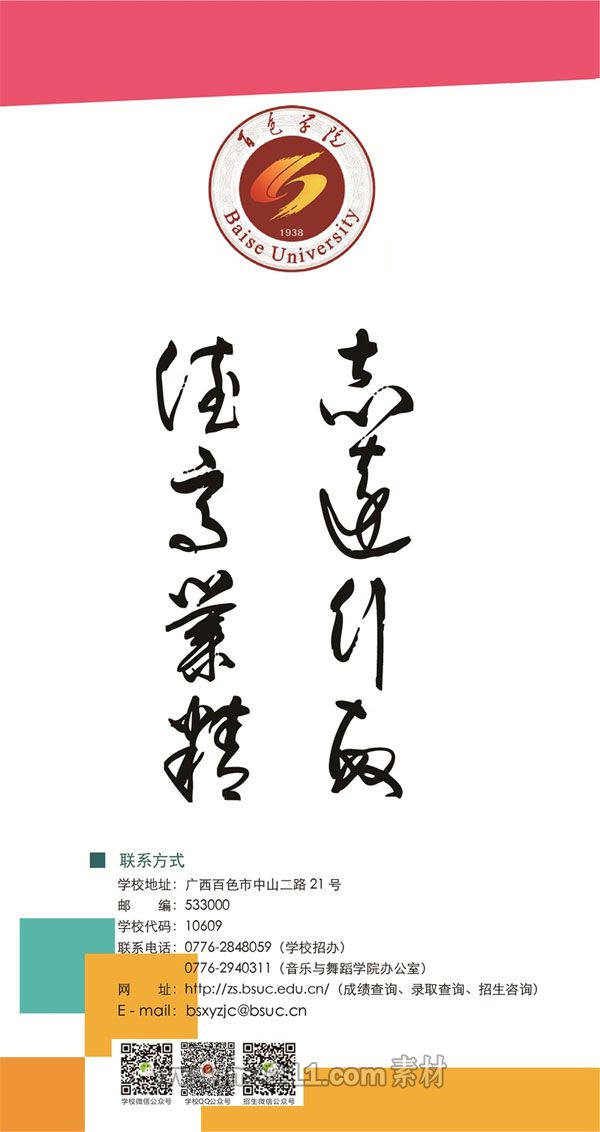 百色学院
1938
Baise University
志達行敏
德高業精
联系方式
学校地址：广西百色市中山二路 21 号
邮　　编：533000
学校代码：10609
联系电话：0776-2848059（学校招办）
0776-2940311（音乐与舞蹈学院办公室）
网　　址：http://zs.bsuc.edu.cn/（成绩查询、录取查询、招生咨询）
E - mail：bsxyzjc@bsuc.cn
学校微信公众号 学校QQ公众号 招生微信公众号
素材